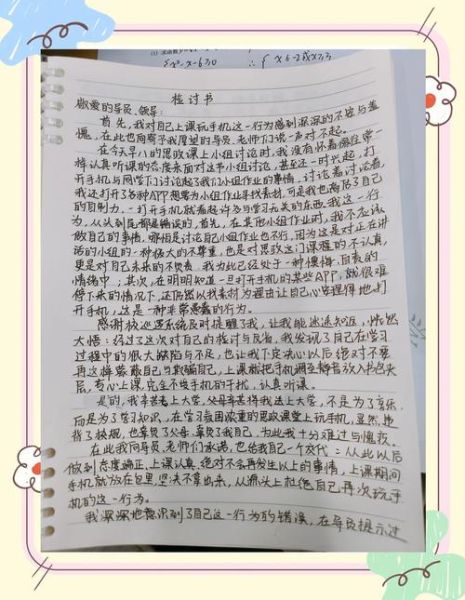 检讨书
敬爱的导员、领导:
首先,我对自己上课玩手机这一行为感到深深的不安与羞
愧,在此也向寄予我厚望的导员、老师们说一声对不起。
在今天早八的思政课上小组讨论时,我没有怀着像往常一
样认真听课的态度来面对这节小组讨论,甚至还一时兴起,打
开手机与同学们讨论起了我们小组作业的事情,讨论着讨论着
我还打开了各种APP想要为小组作业寻找素材,可是我也高估了自己
的自制力,一打开手机就看起许多与学习无关的东西,我这一行
为,从头到尾都是错误的,首先,在其他小组作业时,我不应该
做自己的事情,哪怕是讨论自己小组作业也不行,因为这是对正在讲
话的小组的一种极大的不尊重,也是对思政这门课程的不认真,
更是对自己未来的不负责,我为此已经处于一种懊悔、自责的
情绪中;其次,在明明知道一旦打开手机的某些APP,就很难
停下来的情况下,还仍然以找素材为理由让自己心安理得地打
开手机,这是一种非常愚蠢的行为。
感谢校巡逻系统及时提醒了我,让我能迷途知返,恍然
大悟:经过了这次对自己的检讨与反省,我发现了自己在学习
过程中的很大缺陷与不足,也让我下定决心以后绝对不要
再这样蒙蔽自己与欺骗自己,上课就把手机调至静音放入书包夹
层,专心上课,完全不受手机的干扰,认真听课。
是的,我辛苦考上大学,父母辛苦将我送上大学,不是为了享乐,
而是为了学习知识,在学习氛围浓重的思政课堂上玩手机,显然,违
背了校规,也辜负了父母,辜负了我自己,为此我十分难过与愧疚。
在此我向导员、老师们承诺,也给我自己一个交代:从此以后
做到态度端正,上课认真,绝对不会再发生以上的事情,上课期间
手机就放在包里,坚决不拿出来,从源头上杜绝自己再次玩手
机的这一行为。
我深深地意识到了自己这一行为的错误,在导员提示过